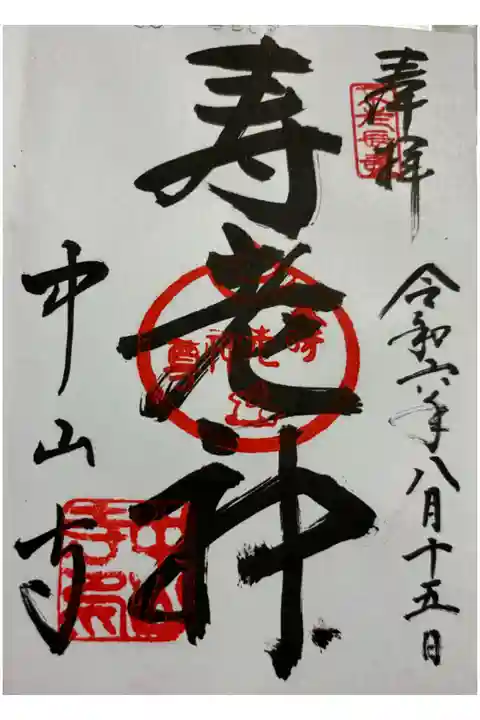 奉拝
令和六年八月十五日
寿老神
中山寺